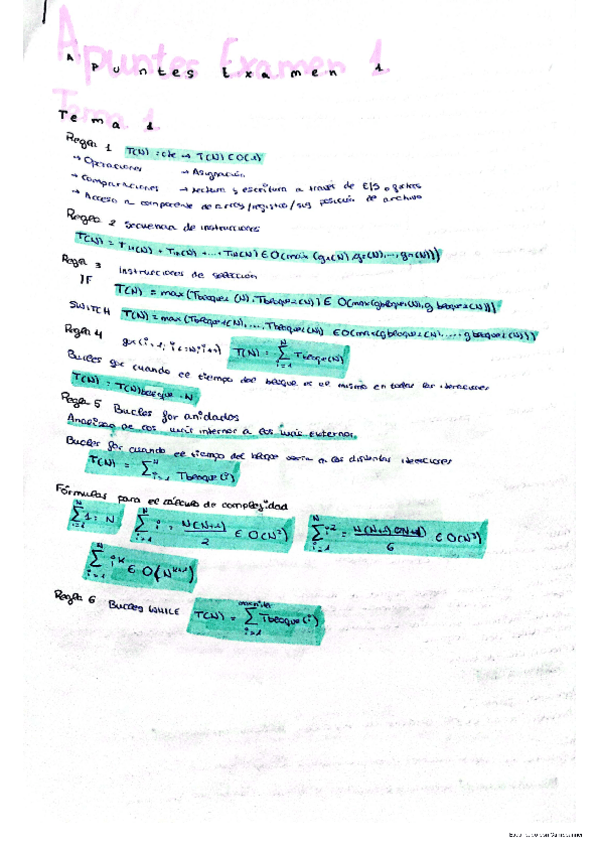 Apuntes Examen 1
Tema 1
Regla 1 T(N) = cte → T(N) ∈ O(1)
→ Operaciones → Asignación
→ Comparaciones → lectura y escritura a través de E/S o
→ Acceso a componente de array/registro/sig posición de archivo
Regla 2 Secuencia de instrucciones
T(N) = T1(N) + T2(N) + ... + Tn(N) ∈ O(max(g1(N), g2(N), ..., gn(N)))
Regla 3 Instrucciones de selección
IF T(N) = max(Tbloque1(N), Tbloque2(N)) ∈ O(max(gbloque1(N), gbloque2(N)))
SWITCH T(N) = max(Tbloque1(N), ..., Tbloque(N)) ∈ O(max(gbloque1(N), ..., gbloque(N)))
Regla 4 for(i=1; i<=N; i++) T(N) = ∑ i=1 N Tbloque(N)
Bucles for cuando el tiempo del bloque es el mismo en todas las iteraciones
T(N) = T(N)bloque · N
Regla 5 Bucles for anidados
Analizar de los más internos a los más externos.
Bucles for cuando el tiempo del bloque varia en las distintas iteraciones
T(N) = ∑ i=1 N Tbloque(i)
Fórmulas para el cálculo de complejidad
∑ i=1 N 1 = N ∑ i=1 N i = N(N+1)/2 ∈ O(N²) ∑ i=1 N i² = N(N+1)(2N+1)/6 ∈ O(N³)
∑ i=1 N i^k ∈ O(N^(k+1))
Regla 6 Bucles WHILE T(N) = ∑ i=1 Tbloque(i)